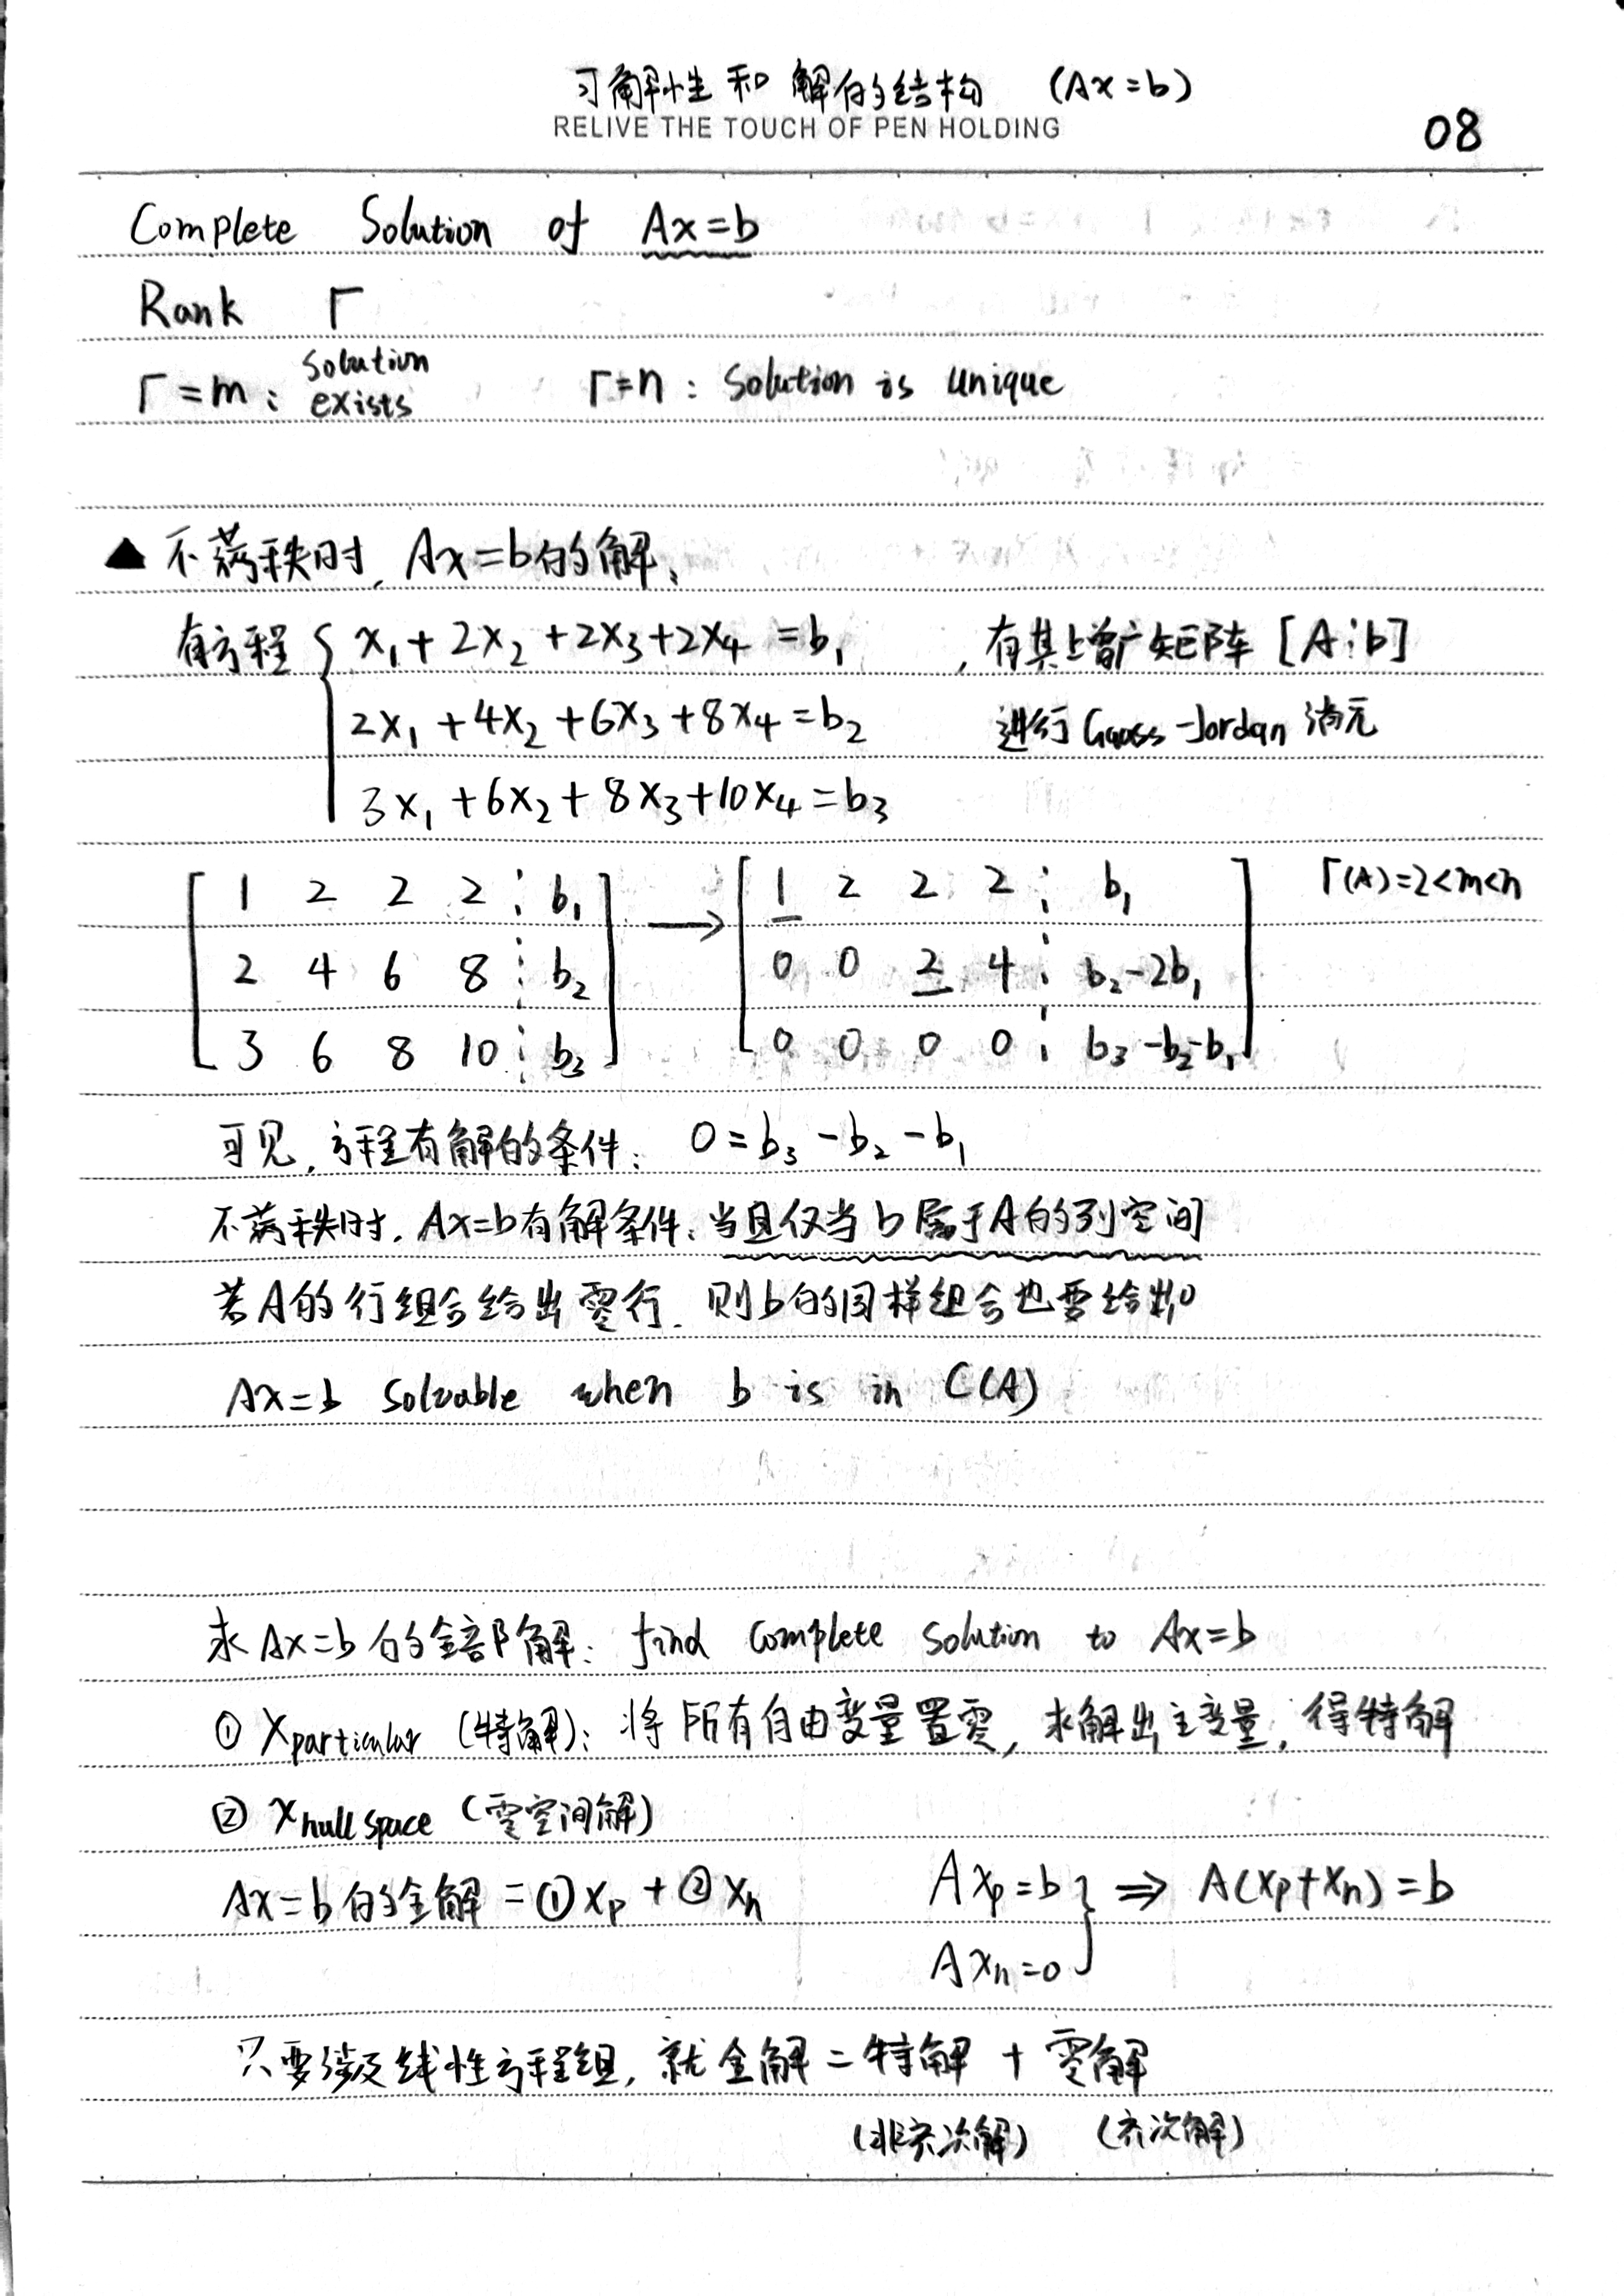 可解性和解的结构 (Ax=b)
RELIVE THE TOUCH OF PEN HOLDING
08
Complete Solution of Ax=b
Rank r
r=m: solution exists r=n: Solution is unique
▲ 不满秩时, Ax=b的解、
有方程 { x₁+2x₂+2x₃+2x₄=b₁ , 有其增广矩阵 [A⋮b]
2x₁+4x₂+6x₃+8x₄=b₂ 进行Gauss-Jordan消元
3x₁+6x₂+8x₃+10x₄=b₃
[ 1 2 2 2 ⋮ b₁ ] → [ 1 2 2 2 ⋮ b₁ ] r(A)=2<m<n
[ 2 4 6 8 ⋮ b₂ ] [ 0 0 2 4 ⋮ b₂-2b₁ ]
[ 3 6 8 10 ⋮ b₃ ] [ 0 0 0 0 ⋮ b₃-b₂-b₁ ]
可见, 方程有解的条件: 0=b₃-b₂-b₁
不满秩时, Ax=b有解条件: 当且仅当b属于A的列空间
若A的行组合给出零行, 则b的同样组合也要给出0
Ax=b Solvable when b is in C(A)
求Ax=b的全部解: find complete solution to Ax=b
① Xparticular (特解): 将所有自由变量置零, 求解出主变量, 得特解
② Xnull space (零空间解)
Ax=b的全解=①Xp+②Xn Axp=b } ⇒ A(xp+xn)=b
Axn=0
只要涉及线性方程组, 就全解=特解+零解
(非齐次解) (齐次解)